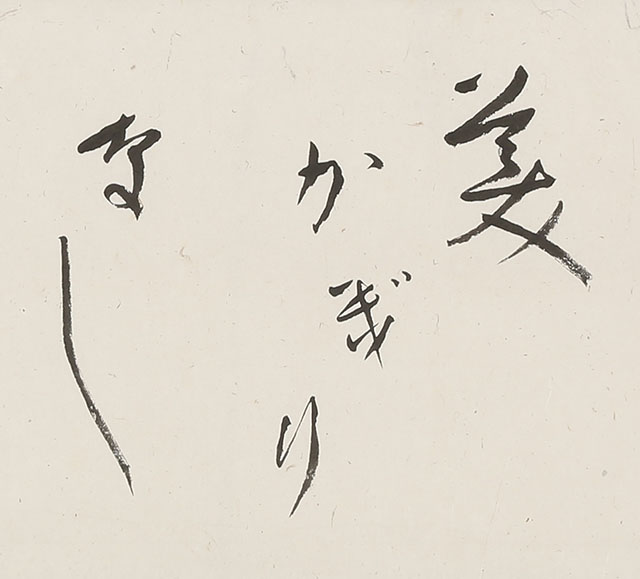 美
かぎり
なし